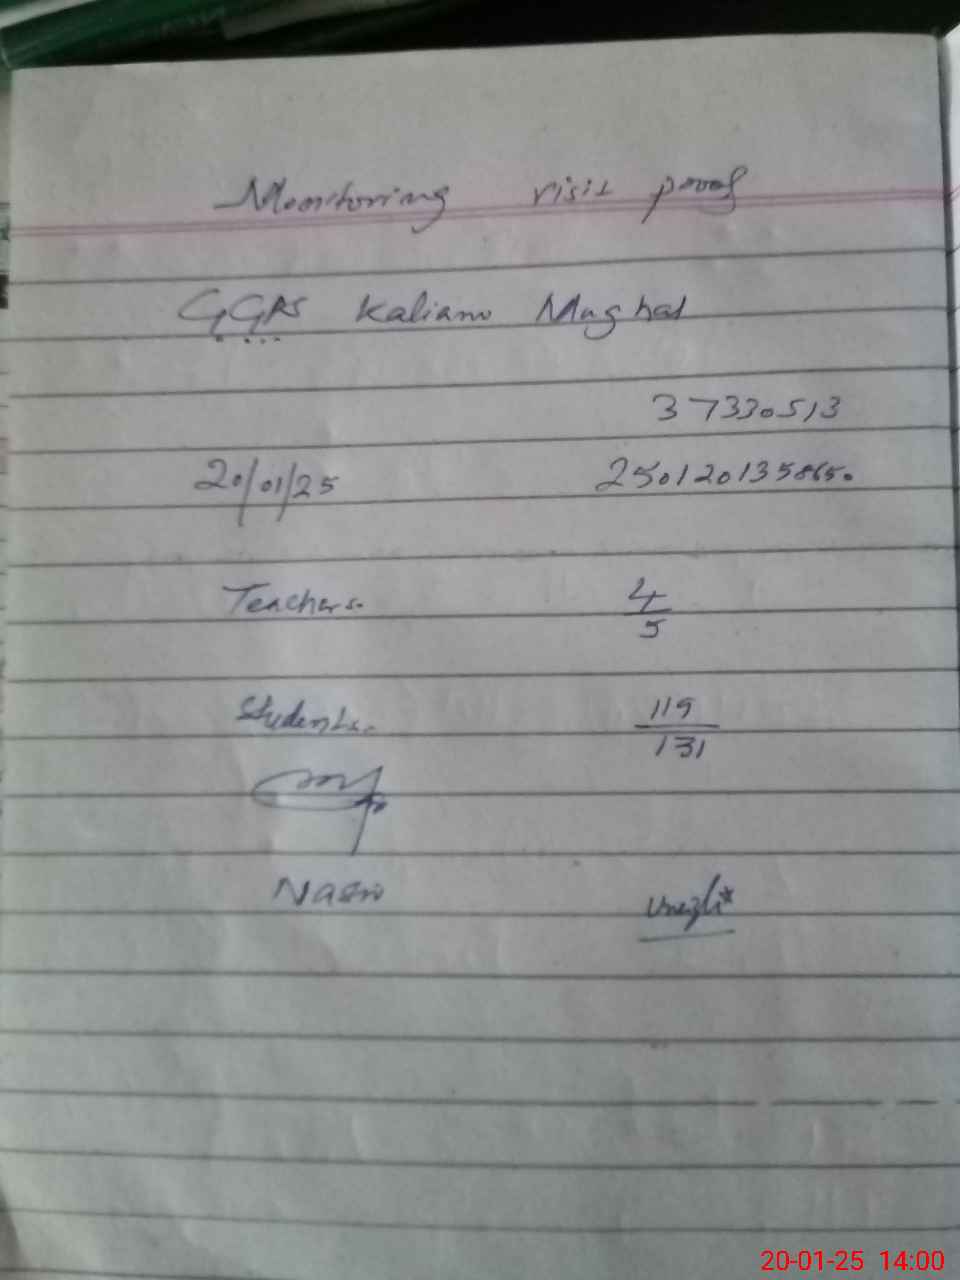 Monitoring visit proof
GGPS Kaliano Mughal
37330513
20/01/25 2501201358650
Teachers. 4/5
Students. 119/131
20-01-25 14:00